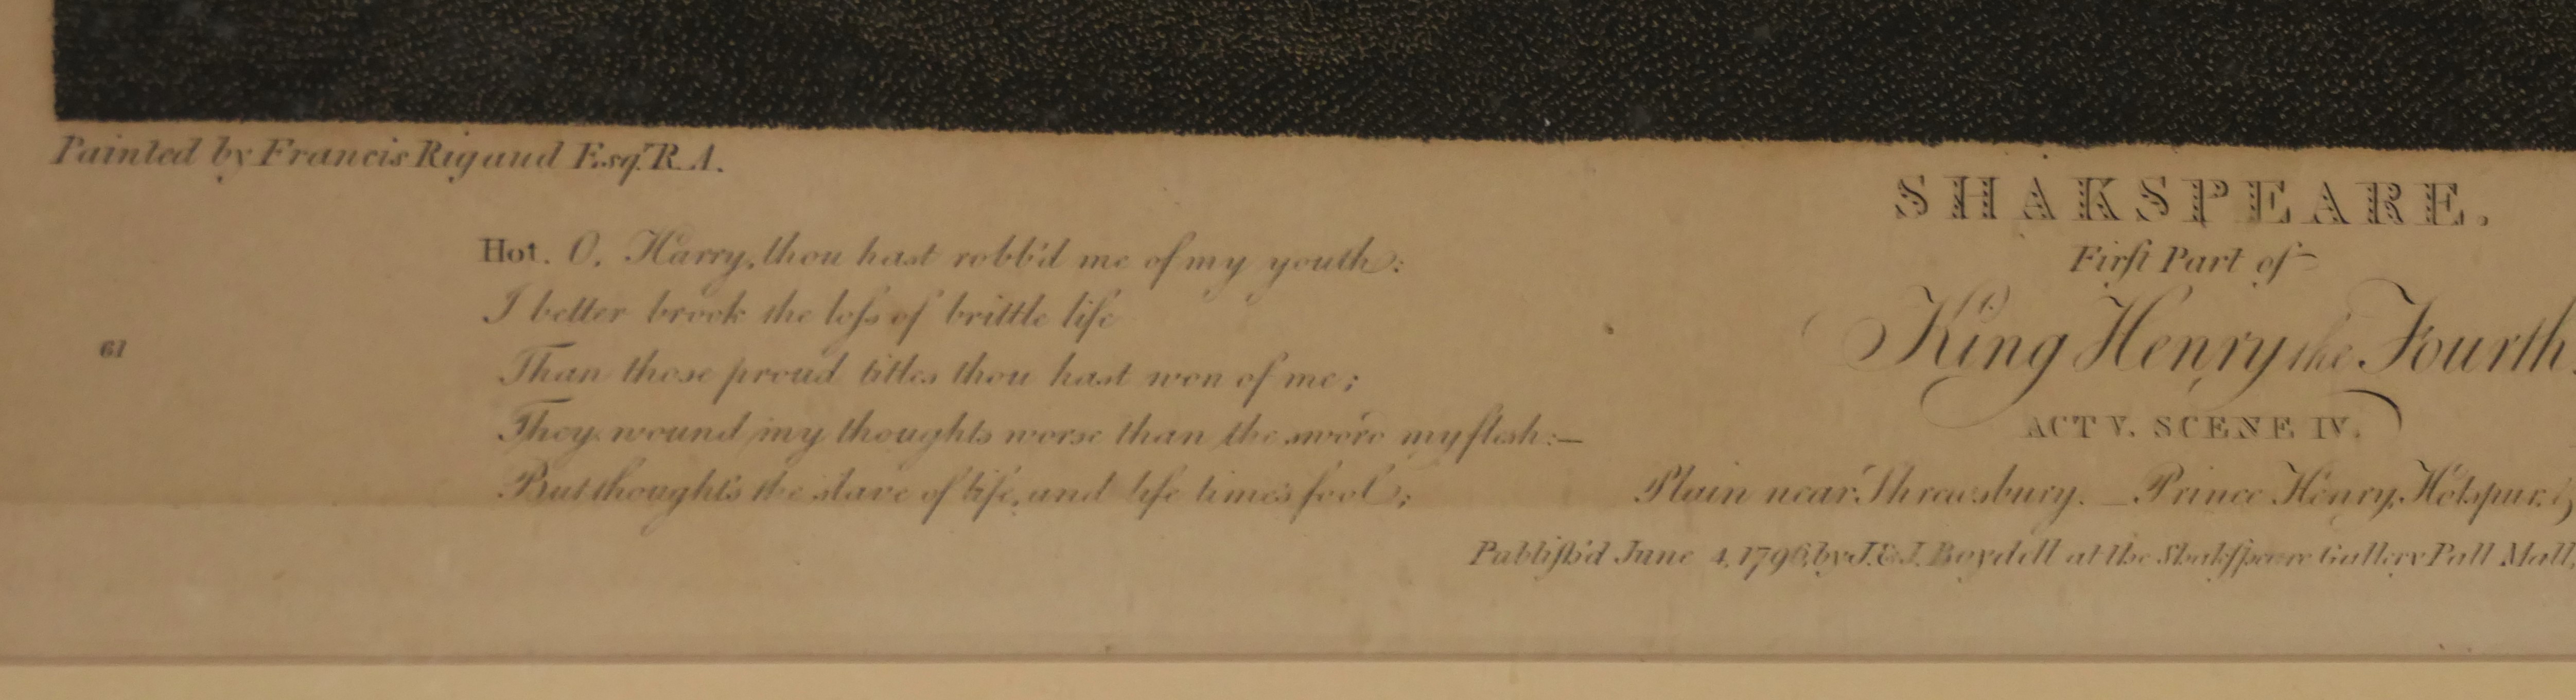 Painted by Francis Rigaud Esqr. R.A.
Hot. O, Harry, thou hast robb'd me of my youth:
I better brook the loſs of brittle life
Than those proud titles thou hast won of me;
They wound my thoughts worse than the sword my flesh:—
But thought's the slave of life, and life time's fool;
61
SHAKSPEARE.
Firſt Part of
King Henry the Fourth.
ACT V. SCENE IV.
Plain near Shrewsbury. — Prince Henry, Hotspur, &
Publiſh'd June 4, 1796, by J. & J. Boydell at the Shakſpeare Gallery Pall Mall,